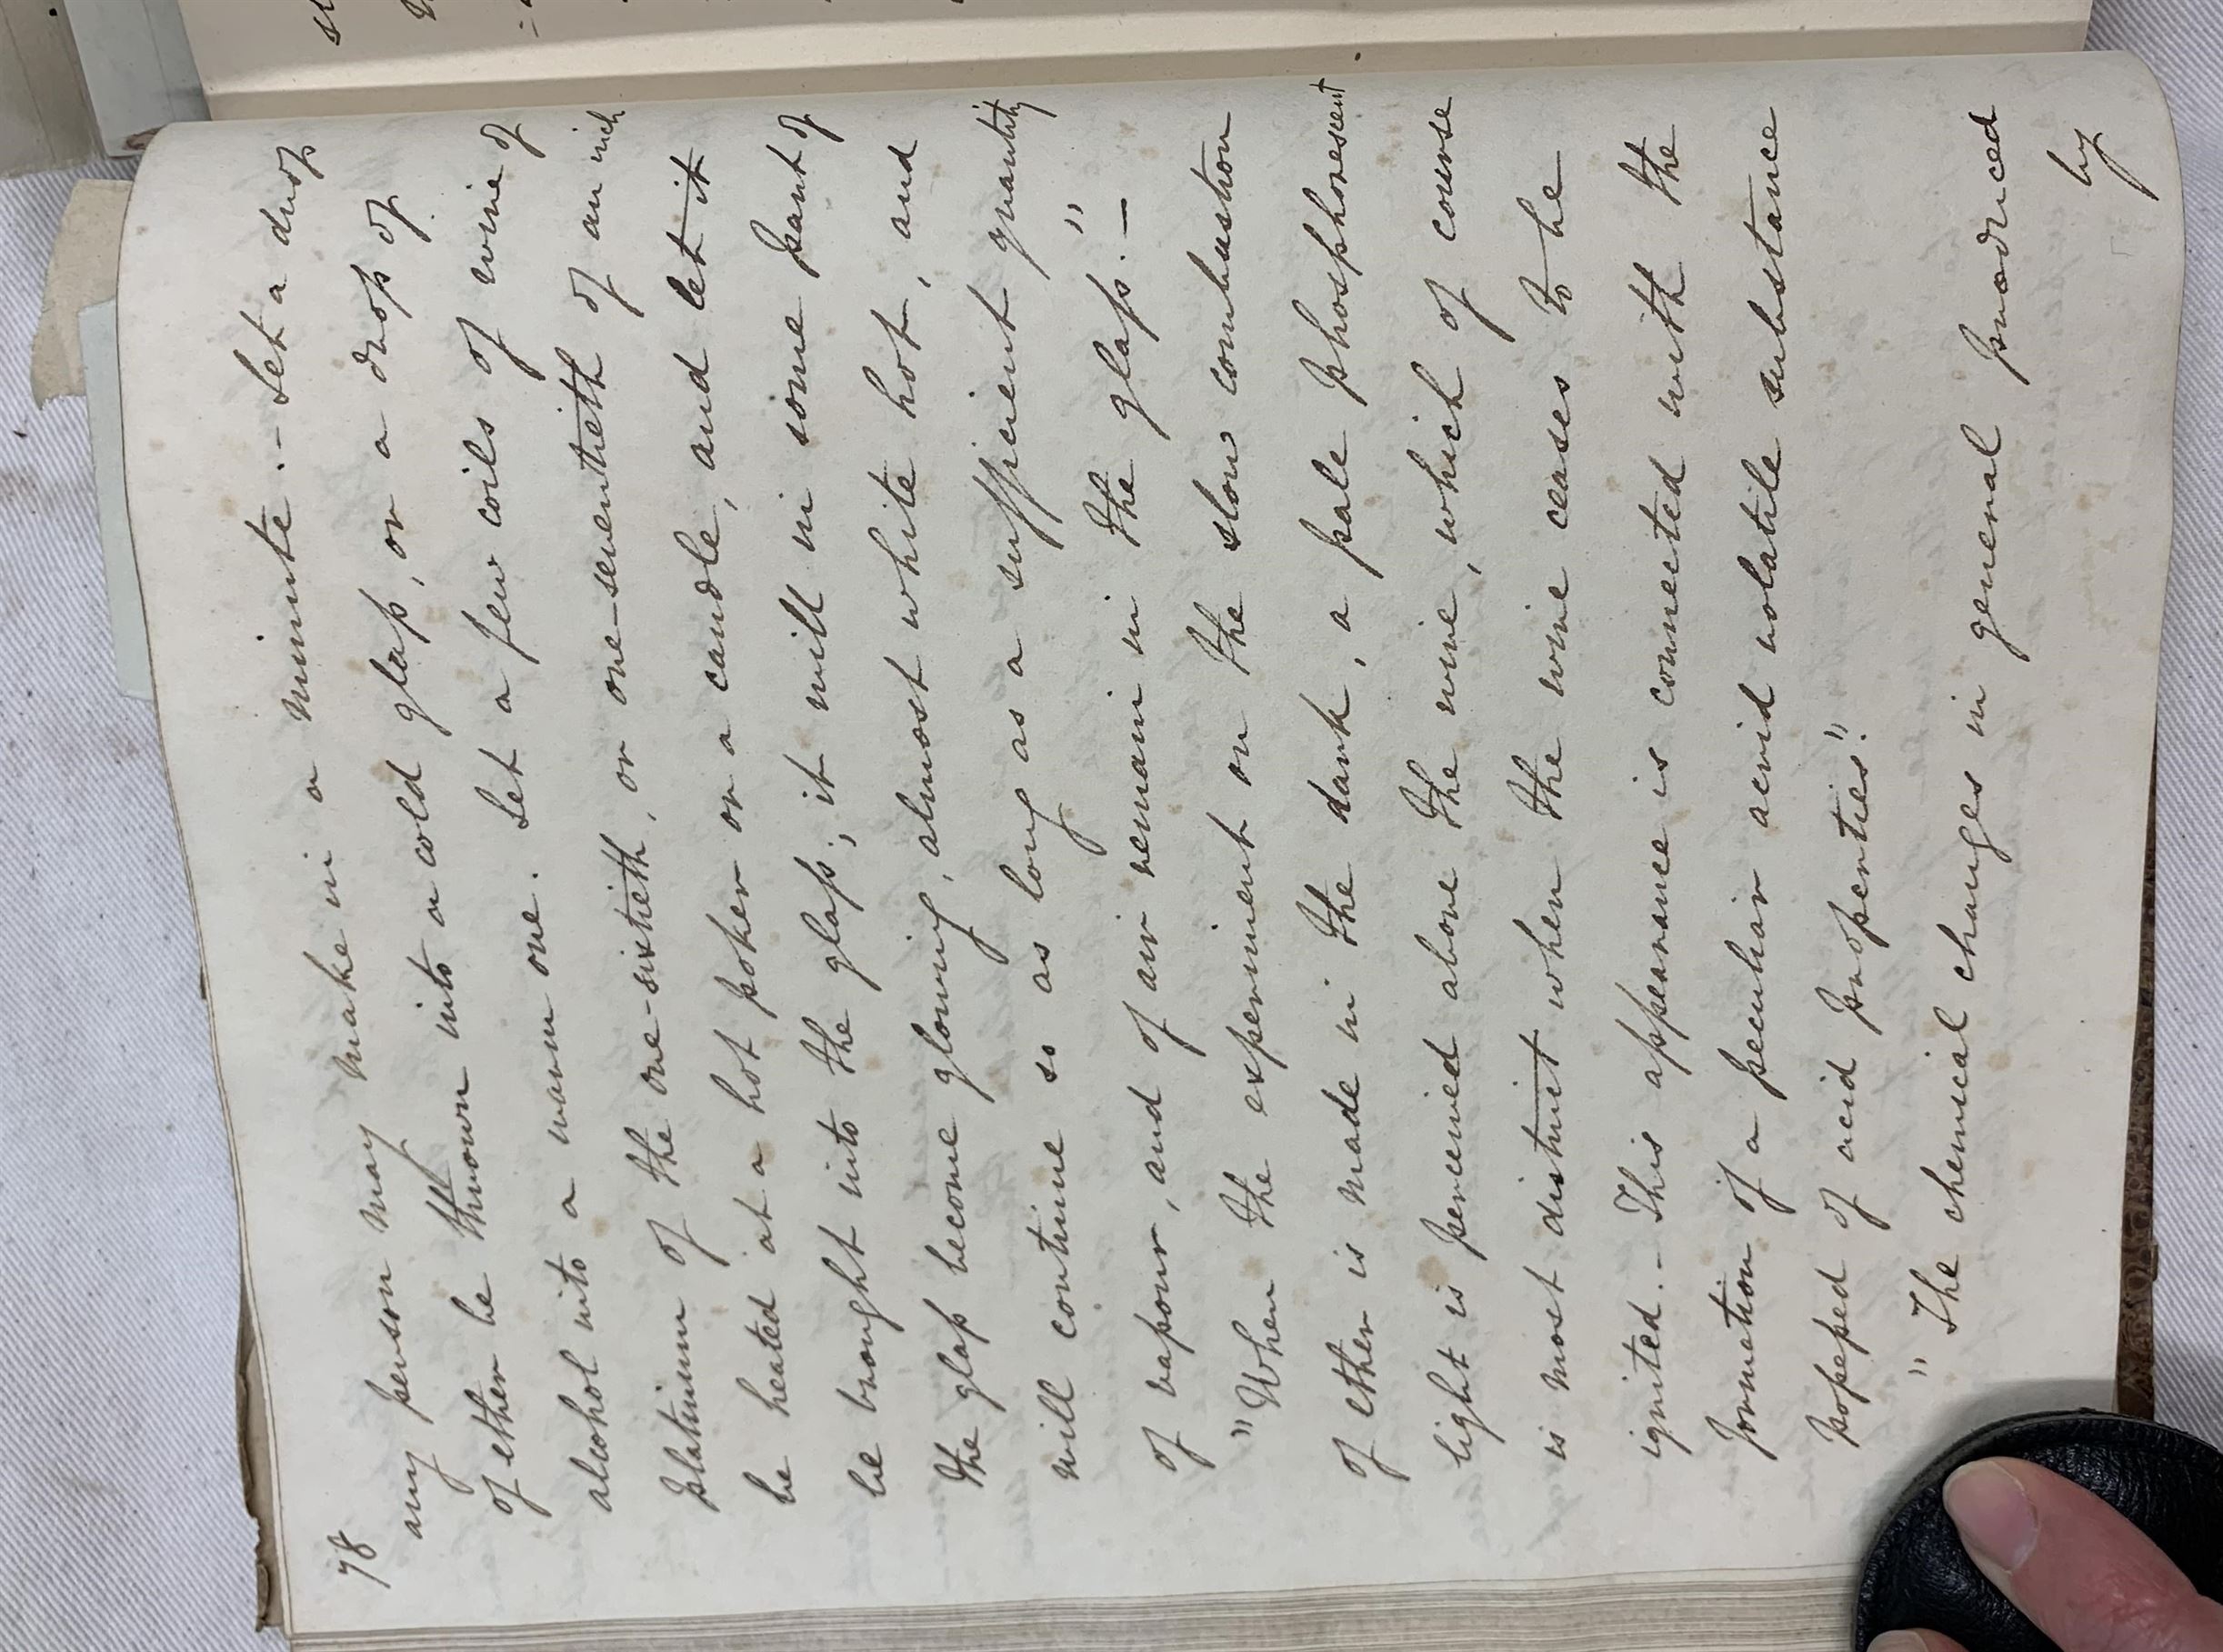 78
any person may make in a minute. - Let a drop
of ether be thrown into a cold glass, or a drop of
alcohol into a warm one. Let a few coils of wire of
platinum of the one-sixtieth, or one-seventieth of an inch
be heated at a hot poker or a candle, and let it
be brought into the glass; it will in some part of
the glass become glowing, almost white hot, and
will continue so as long as a sufficient quantity
of vapour, and of air remain in the glass." -
"When the experiment on the slow combustion
of ether is made in the dark, a pale phosphorescent
light is perceived above the wire, which of course
is most distinct when the wire ceases to be
ignited. - This appearance is connected with the
formation of a peculiar acrid volatile substance
possessed of acid properties."
"The chemical changes in general produced
by